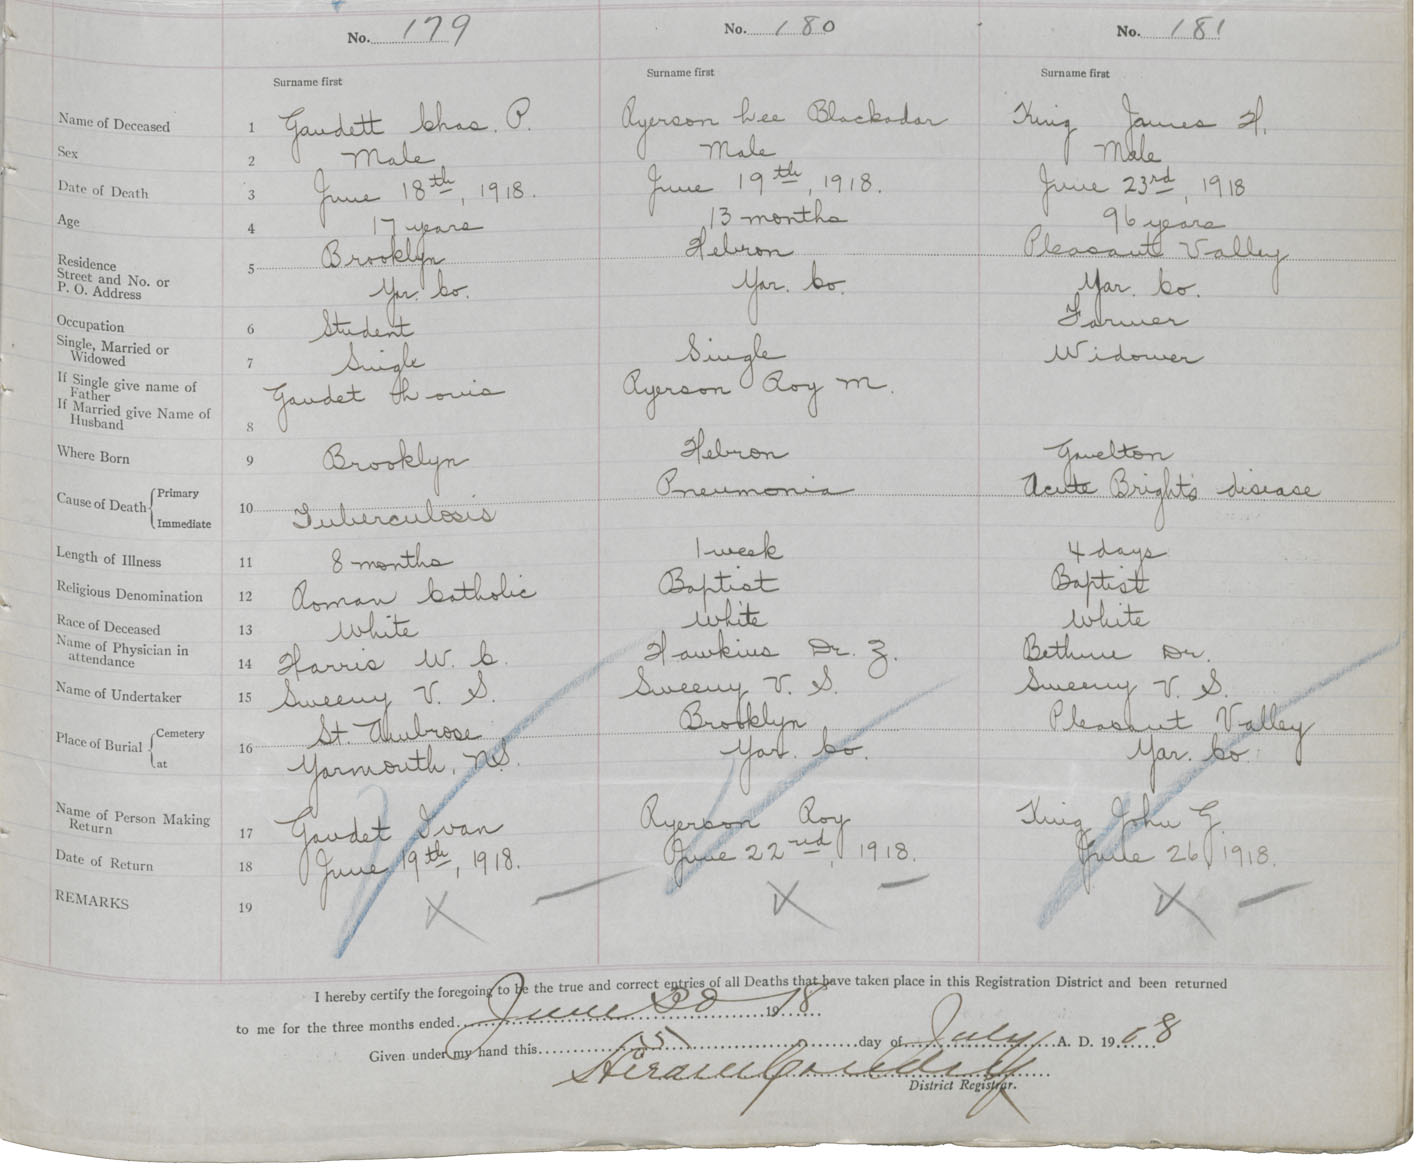 No. 179 No. 180 No. 181
Surname first Surname first Surname first
Name of Deceased 1 Gaudett Chas. P. Ryerson Lee Blackadar King James H.
Sex 2 Male Male Male
Date of Death 3 June 18th, 1918. June 19th, 1918. June 23rd, 1918
Age 4 17 years 13 months 96 years
Residence Street and No. or P. O. Address 5 Brooklyn Hebron Pleasant Valley
Yar. Co. Yar. Co. Yar. Co.
Occupation 6 Student Farmer
Single, Married or Widowed 7 Single Single Widower
If Single give name of Father Gaudet Louis Ryerson Roy M.
If Married give Name of Husband 8
Where Born 9 Brooklyn Hebron Gavelton
Cause of Death { Primary Pneumonia Acute Bright's disease
Immediate 10 Tuberculosis
Length of Illness 11 8 months 1 week 4 days
Religious Denomination 12 Roman Catholic Baptist Baptist
Race of Deceased 13 White White White
Name of Physician in attendance 14 Harris W. C. Hawkins Dr. Z. Bethune Dr.
Name of Undertaker 15 Sweeny V. S. Sweeny V. S. Sweeny V. S.
Place of Burial { Cemetery 16 St. Ambrose Brooklyn Pleasant Valley
at Yarmouth, N.S. Yar. Co. Yar. Co.
Name of Person Making Return 17 Gaudet Ivan Ryerson Roy King John G.
Date of Return 18 June 19th, 1918. June 22nd, 1918. June 26, 1918.
REMARKS 19 X — X — X —
I hereby certify the foregoing to be the true and correct entries of all Deaths that have taken place in this Registration District and been returned
to me for the three months ended June 30 1918
Given under my hand this 15 day of July A. D. 1918
Hiram Goudey
District Registrar.